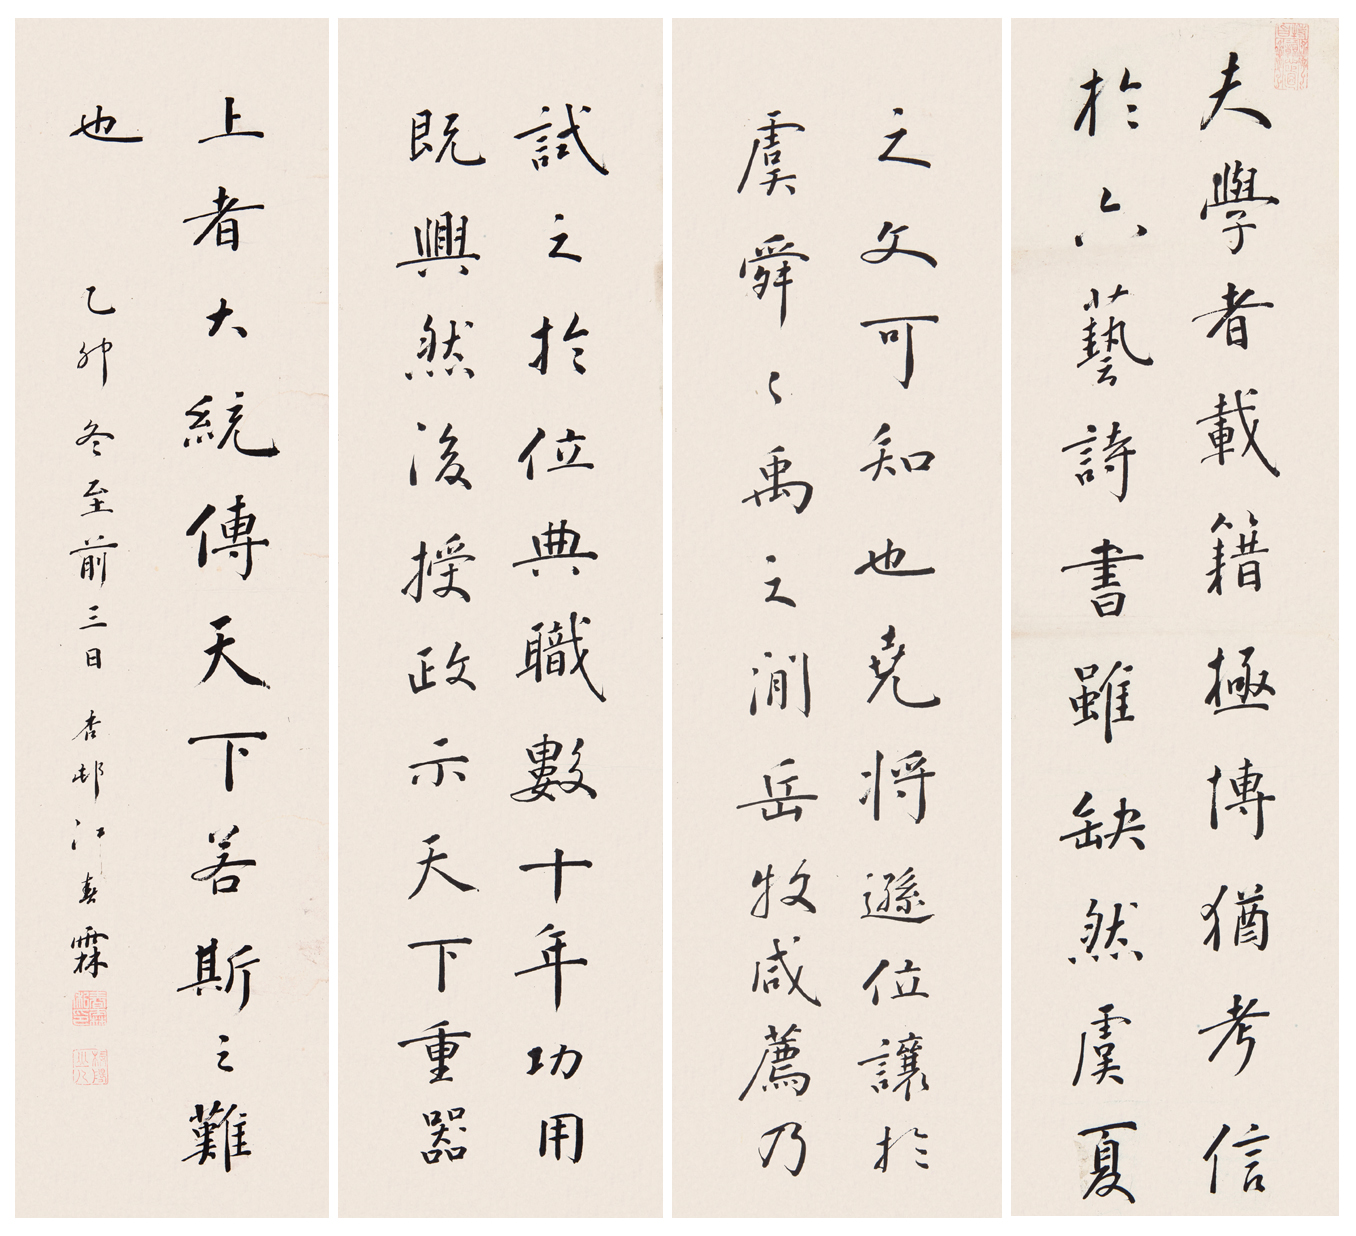 夫學者載籍極博猶考信
於六藝詩書雖缺然虞夏
之文可知也堯將遜位讓於
虞舜々禹之澗岳牧咸薦乃
試之於位典職數十年功用
既興然後授政示天下重器
上者大統傳天下若斯之難
也
乙卯冬至前三日 杏邨江春霖